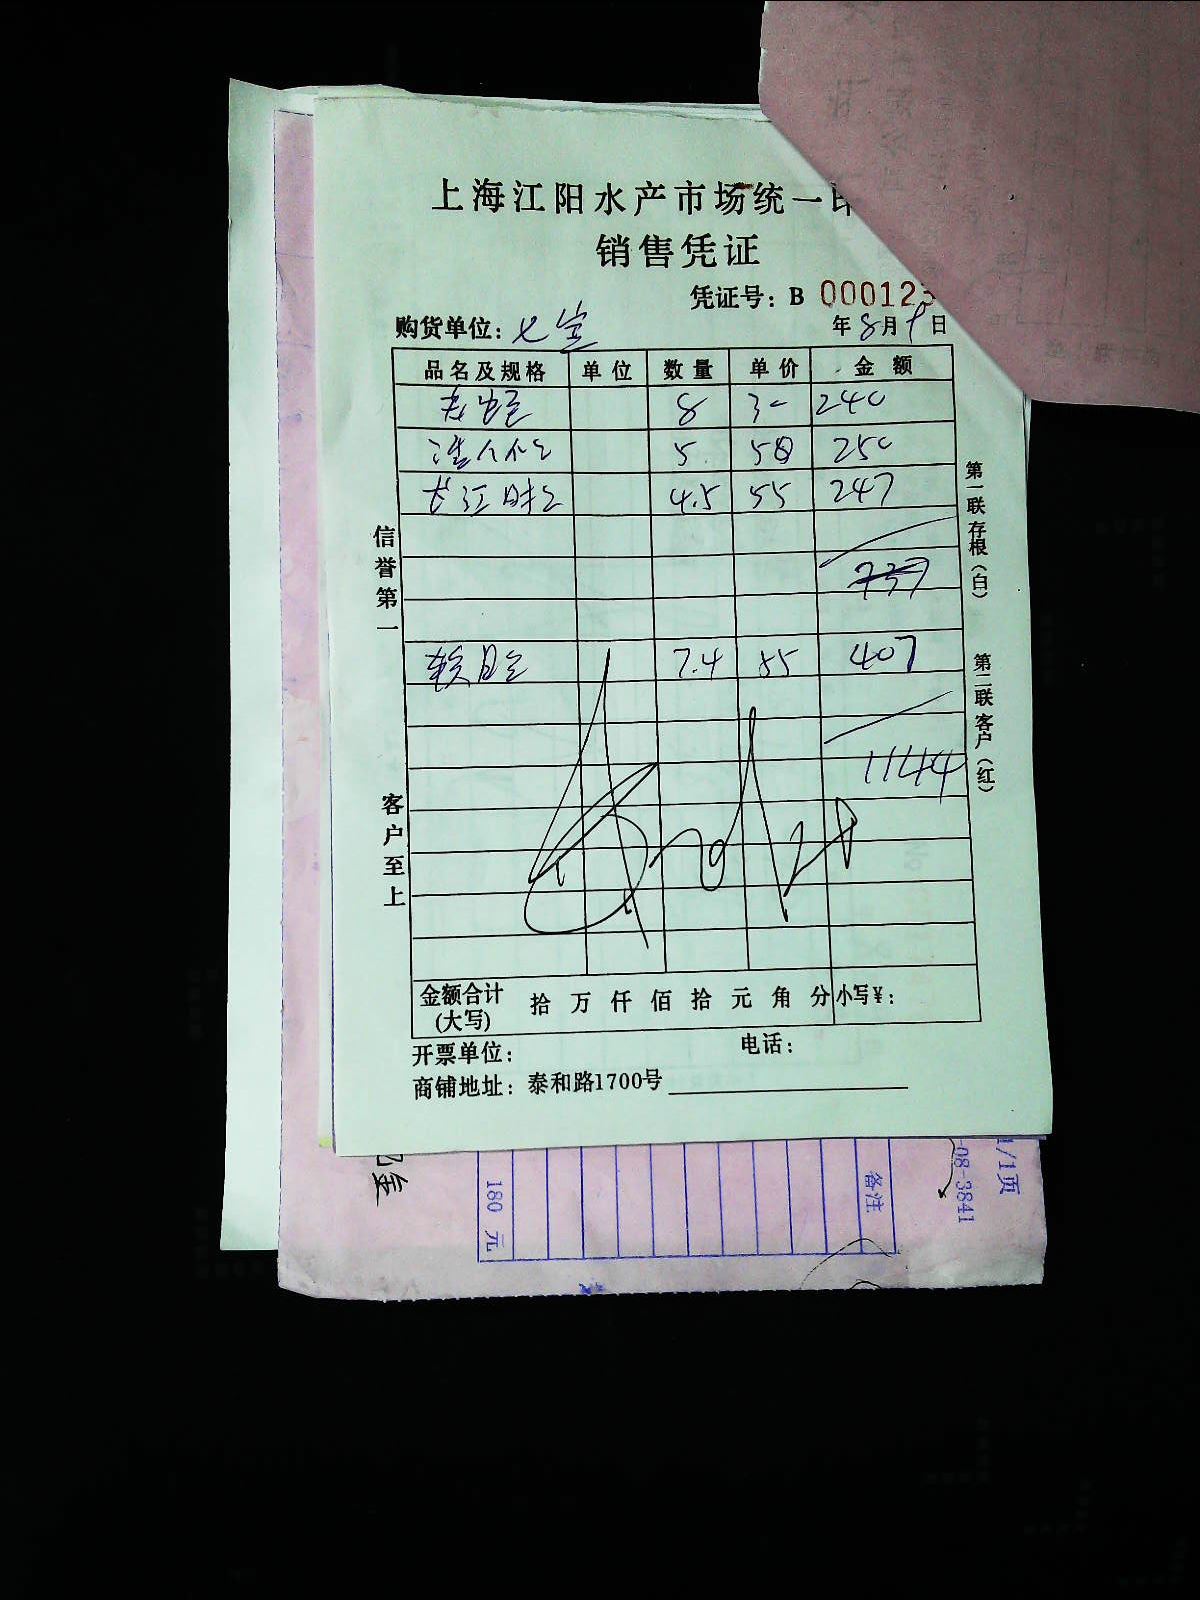 上海江阳水产市场统一印
销售凭证
凭证号：B 000123
购货单位：七宝 年8月9日
品名及规格 单位 数量 单价 金额
8 30 240
5 50 250
长江 4.5 55 247
737
7.4 55 407
1144
信誉第一
客户至上
第一联存根（白）
第二联客户（红）
金额合计(大写) 拾 万 仟 佰 拾 元 角 分 小写¥：
开票单位： 电话：
商铺地址：泰和路1700号
1/1页
-08-3841
备注
180 元